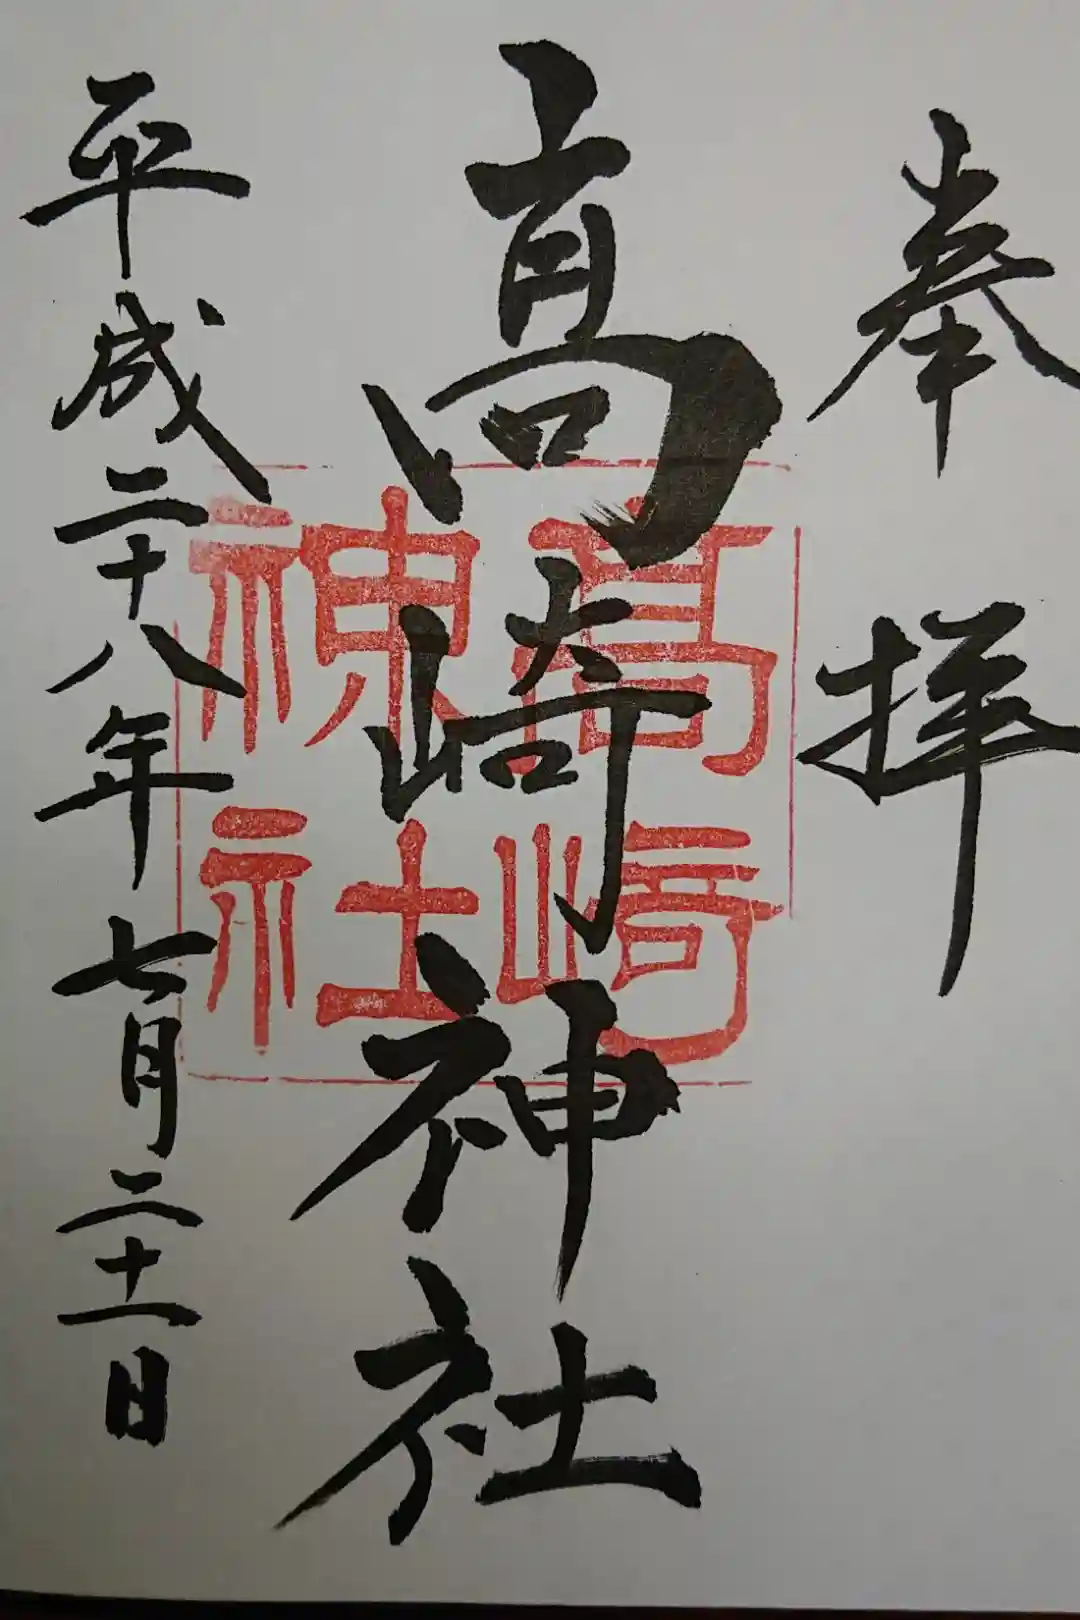 奉拝
高崎神社
高崎
神社
平成二十八年七月二十一日